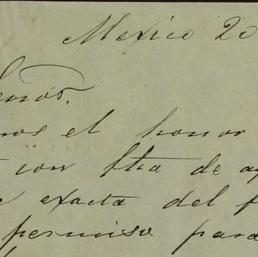 Mexico 20
Señor.
mos el honor
con fha de
exacta del
permiso para